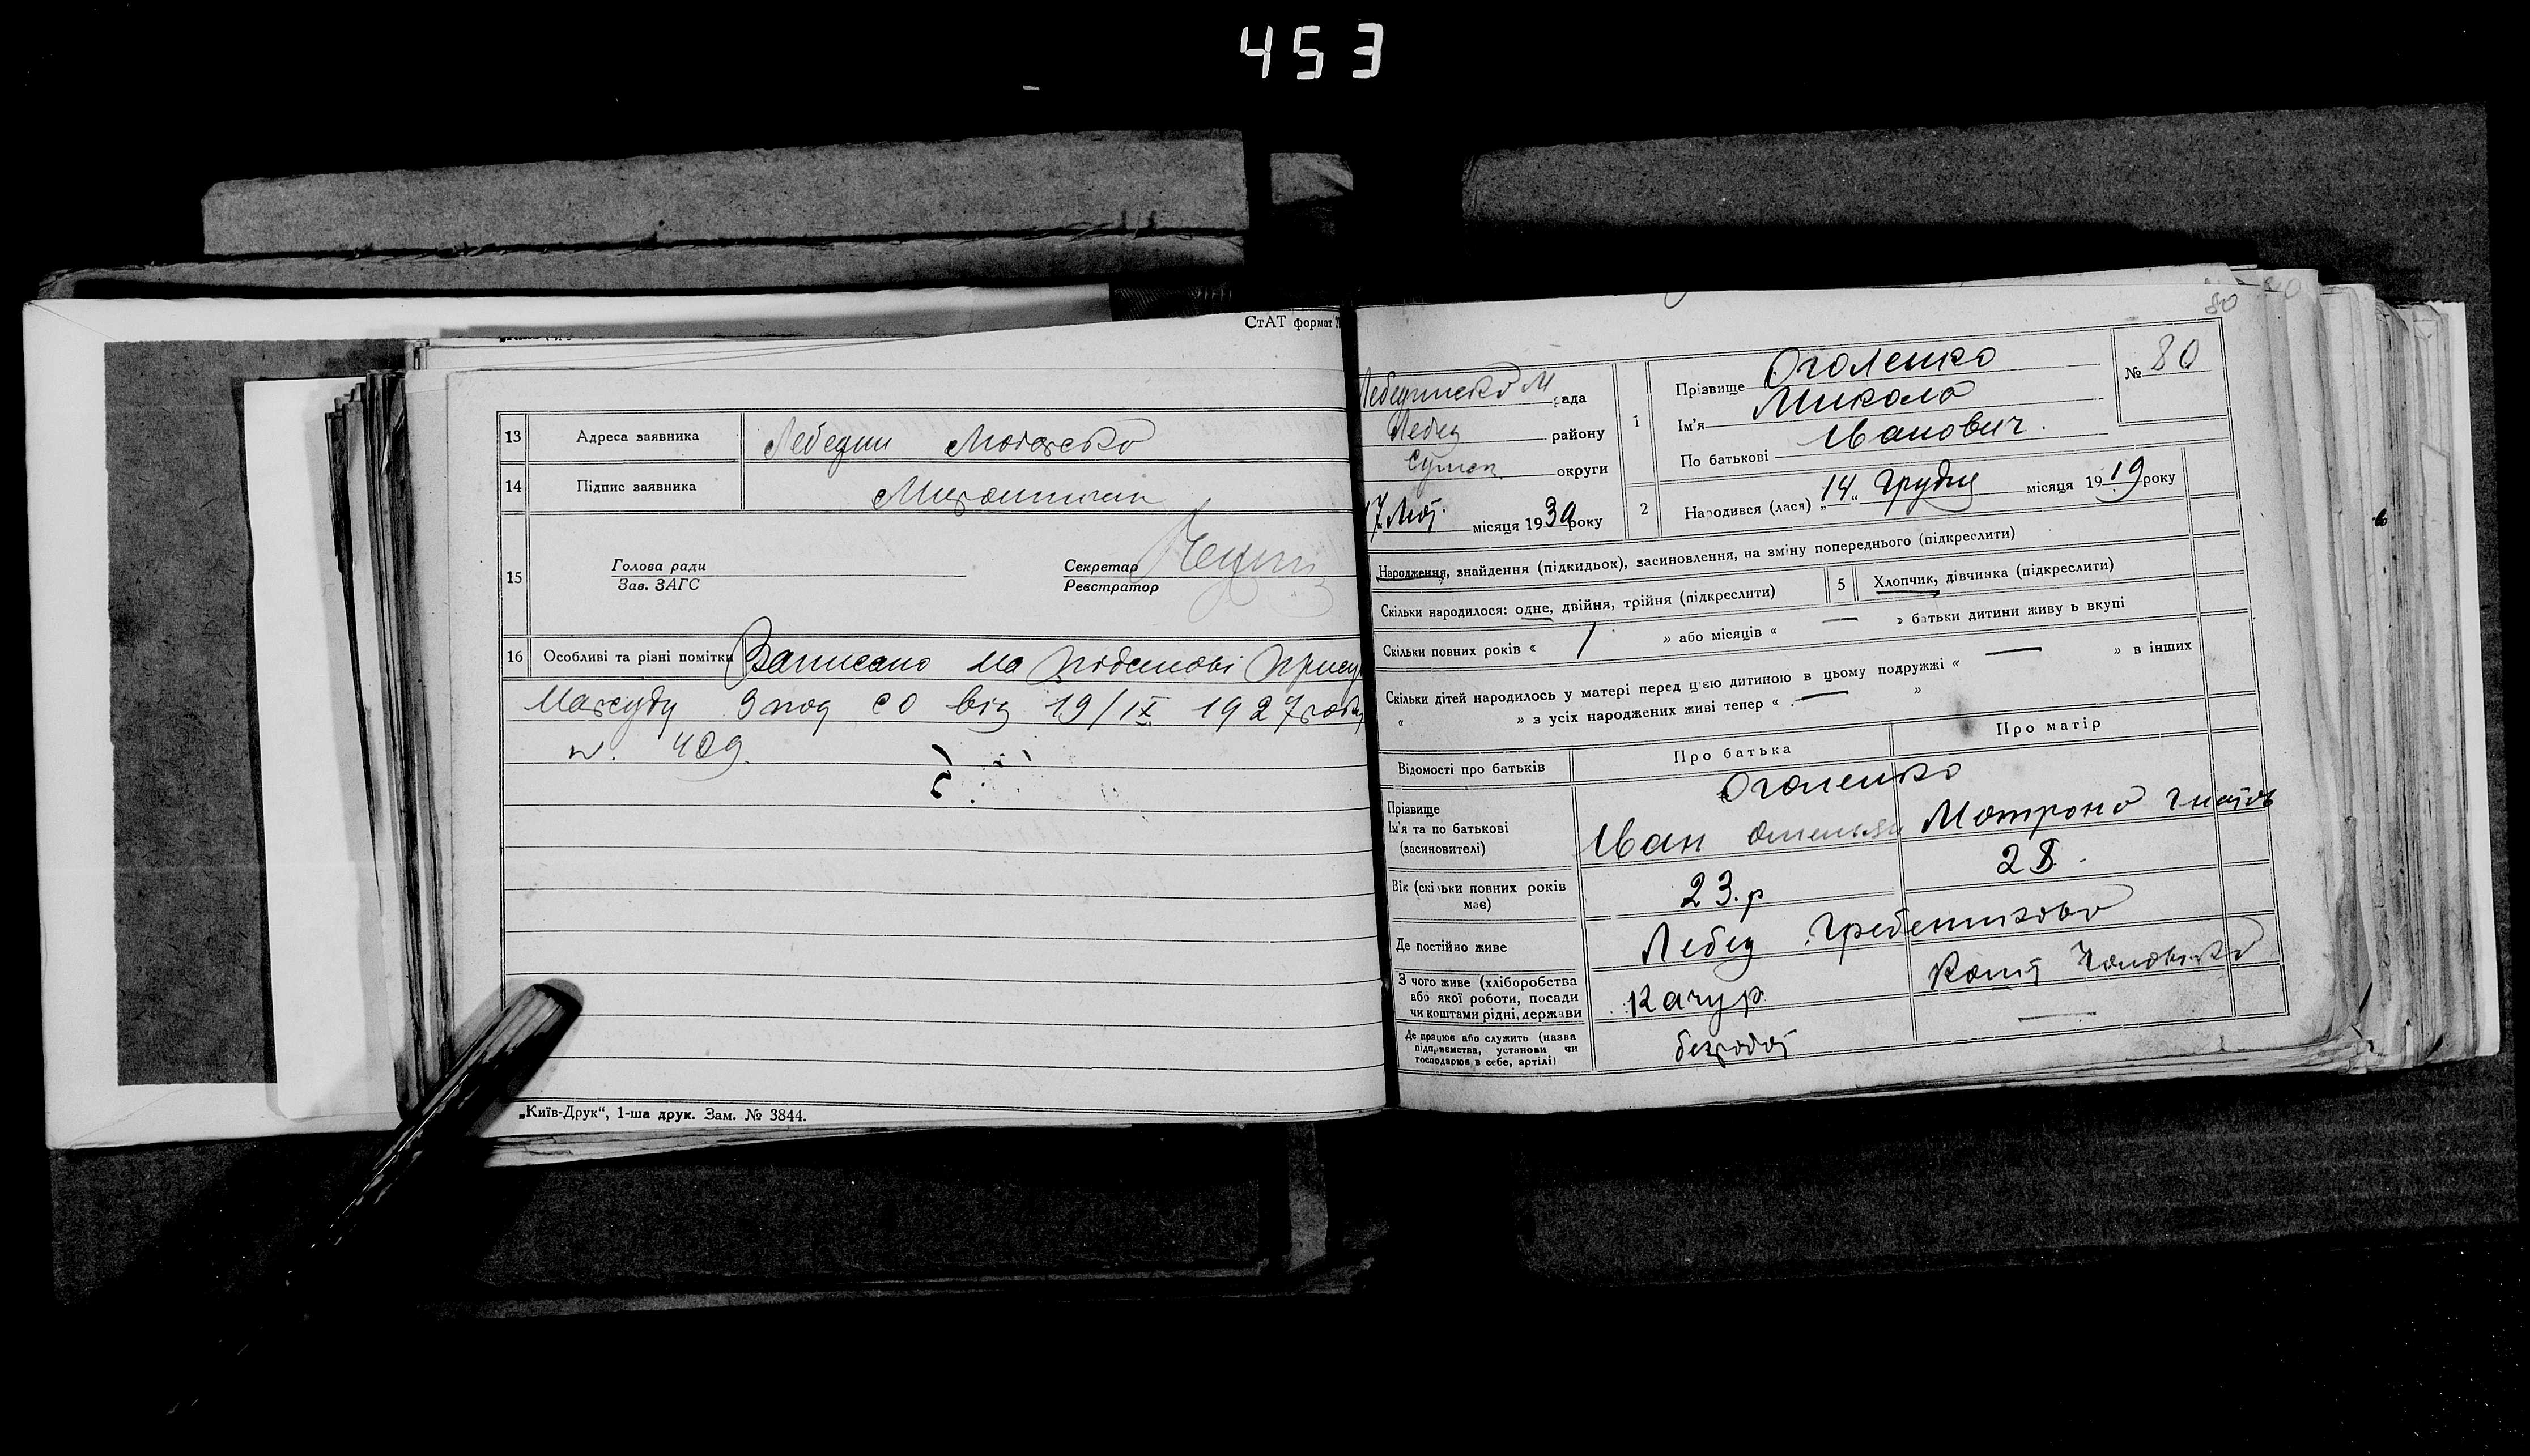 453
СтАТ формат
13 Адреса заявника Лебедин
14 Підпис заявника
15 Голова ради Секретар
Зав. ЗАГС Реєстратор
16 Особливі та різні помітки Записано на підставі
від 19/IX 1927 року
409.
„Київ-Друк“, 1-ша друк. Зам. № 3844.
80
рада
Лебед району
Сумск округи
17 Лют. місяця 1930 року
1 Прізвище Оголенко
Ім'я Микола
По батькові Іванович.
№ 80
2 Народився (лася) „14„ Грудня місяця 1919 року
Народження, знайдення (підкидьок), засиновлення, на зміну попереднього (підкреслити)
Скільки народилося: одне, двійня, трійня (підкреслити) 5 Хлопчик, дівчинка (підкреслити)
Скільки повних років « 1 » або місяців « — » батьки дитини живу ь вкупі
Скільки дітей народилось у матері перед цією дитиною в цьому подружжі « — » в інших
« » з усіх народжених живі тепер « — »
Відомості про батьків Про батька Про матір
Прізвище Оголенко
Ім'я та по батькові Іван Мотрона
(засиновителі)
Вік (скільки повних років має) 23.р 28.
Де постійно живе Лебед
З чого живе (хліборобства
або якої роботи, посади
чи коштами рідні, держави Качур
Де працює або служить (назва
підприємства, установи чи
господарює в себе, артілі) —